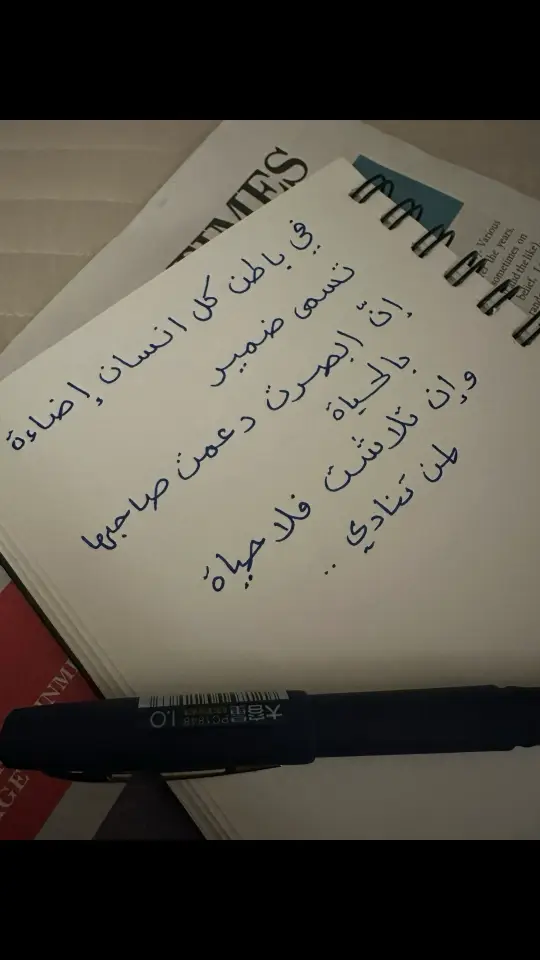 في باطن كل انسان إضاءة
تسمى ضمير
إنّ ابصرت دعمت صاحبها
بالحياة
وإن تلاشت فلا حياة
لمن تنادي ..
IMES
Various
the years,
sometimes on
and the like)
belief,
PC1848 1.0